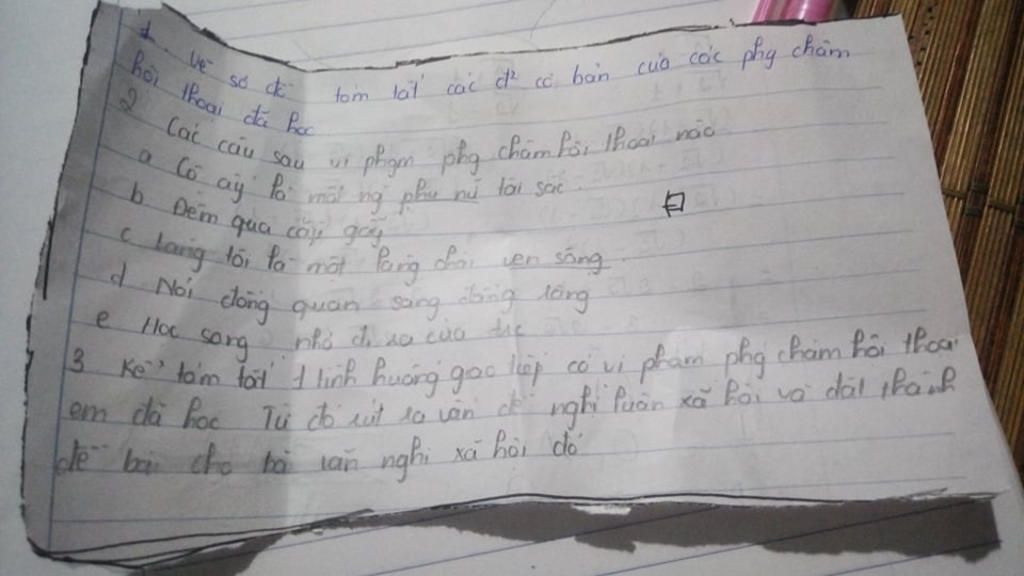 1. Vẽ sơ đồ tóm tắt các đ² cơ bản của các phg châm
hội thoại đã học
2 Các câu sau vi phạm phg châm hội thoại nào
a Cô ấy là một ng phụ nữ tài sắc.
b Đêm qua cầu gãy
c Làng tôi là một làng chài ven sông.
d Nói đồng quan sang đồng rộng
e Học song nhớ đi ra cửa
3 Kể tóm tắt 1 tình huống gao tiếp có vi phạm phg châm hội thoại
em đã học Từ đó rút ra vấn đề nghị luân xã hội và đặt thành
đề bài cho bài văn nghi xã hội đó